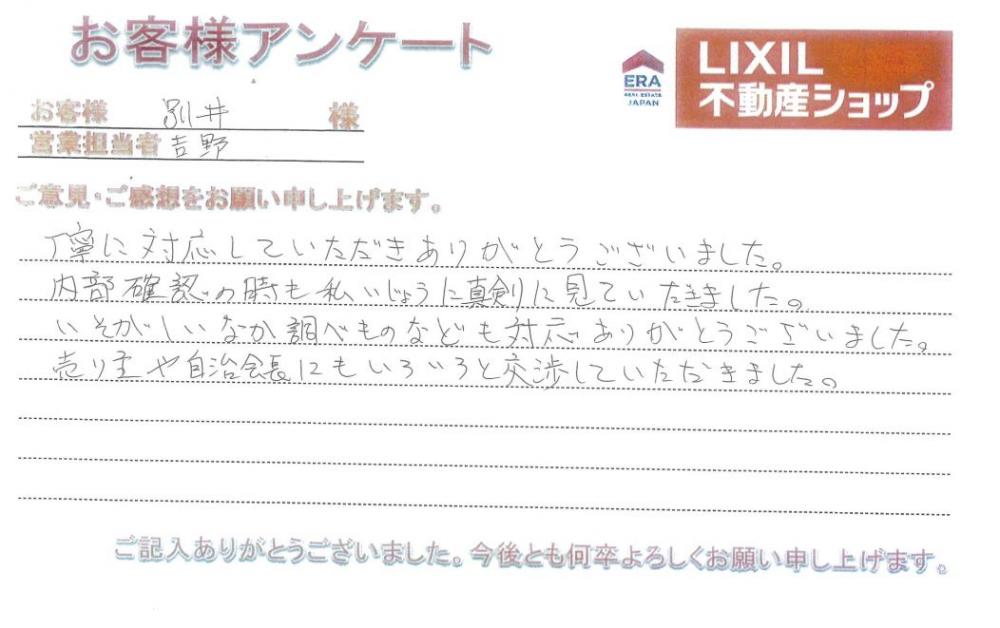 お客様アンケート
ERA
REAL ESTATE
JAPAN
LIXIL
不動産ショップ
お客様 別井 様
営業担当者 吉野
ご意見・ご感想をお願い申し上げます。
丁寧に対応していただきありがとうございました。
内部確認の時も私いじょうに真剣に見ていただきました。
いそがしいなか調べものなども対応ありがとうございました。
売り主や自治会長にもいろいろと交渉していただきました。
ご記入ありがとうございました。今後とも何卒よろしくお願い申し上げます。